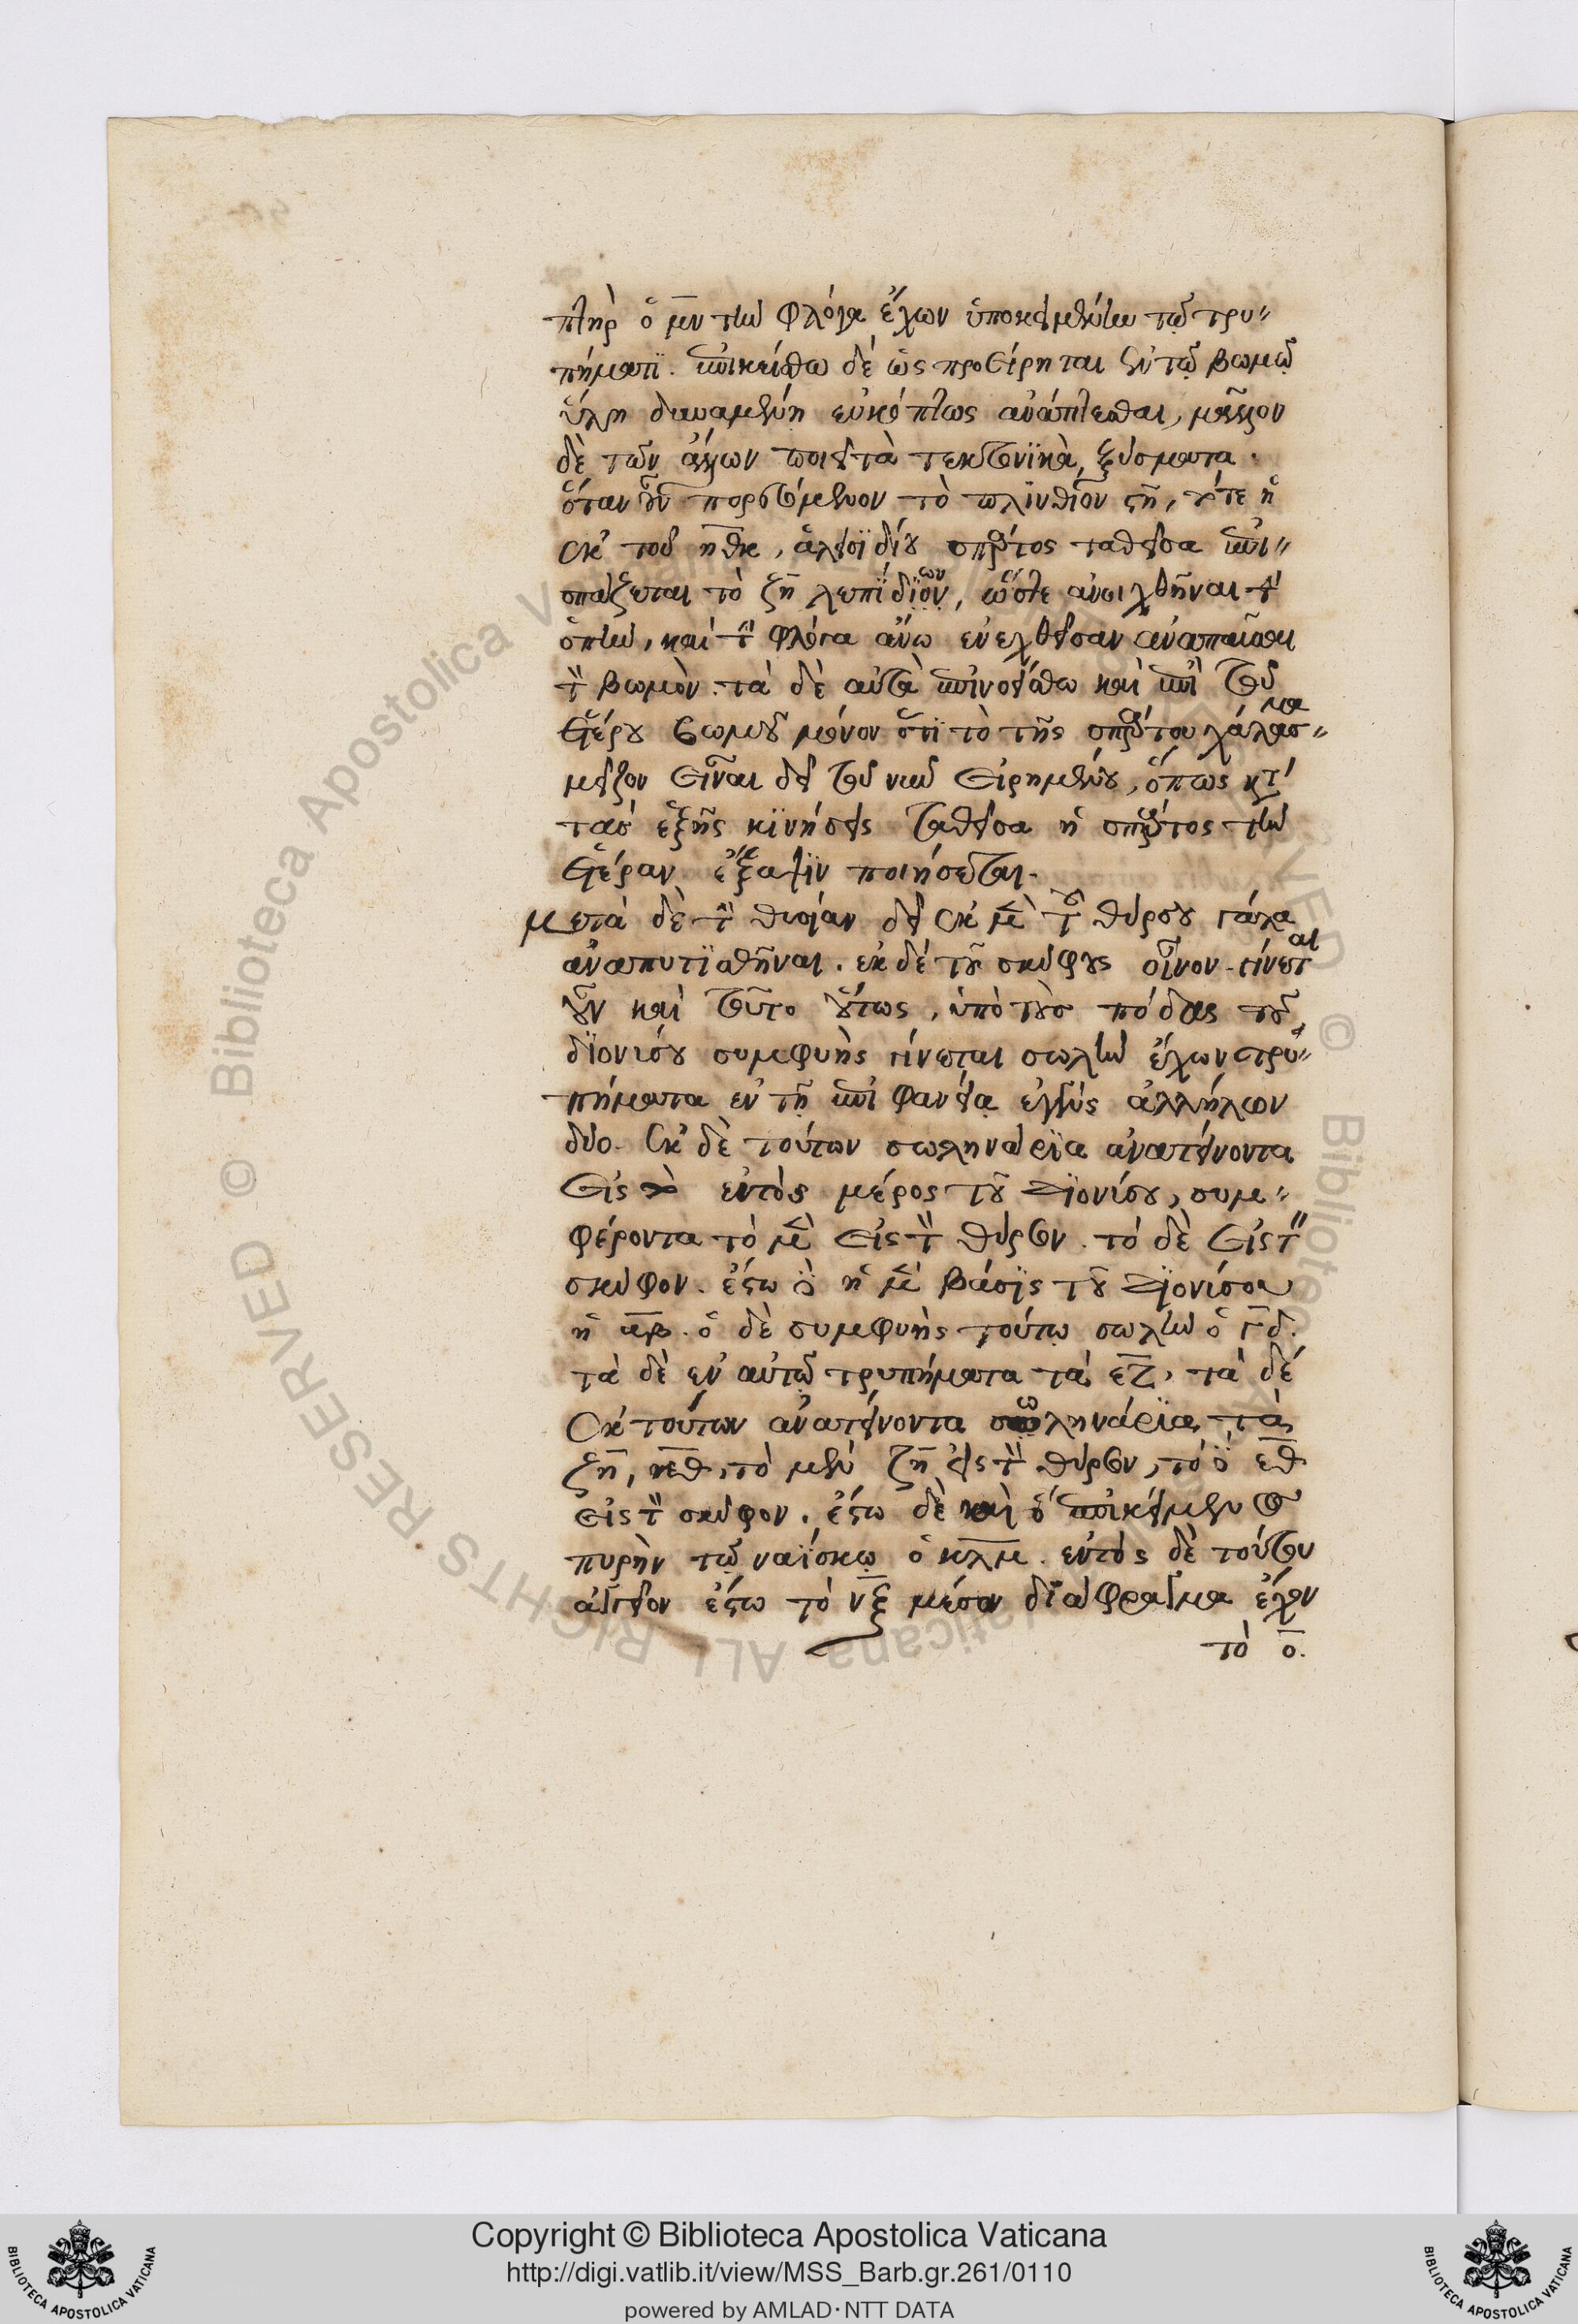 πτηρ ὁ μν τὴν φλόγα ἔχων ὑποκειμένην τῷ τρυ〃
πήματϊ. ἐπικείσθω δὲ ὡς προείρηται ἐν τῷ βωμῷ
ὕλη δυναμένη εὐκόπτως ἀνάπτεσθαι, μᾶλλον
δὲ τῶν ἄλλων ποιεῖ τὰ τεκτονϊκὰ ξύσματα.
ὅταν οὖν πορευόμενον τὸ πλινθίον στῇ, τότε ἡ
ἐκ τοῦ ηθκ, ἀγγοϊδίου σπάρτος ταθεῖσα ἐπι〃
σπάσεται τὸ ζη λεπϊδϊον, ὥστε ἀνοιχθῆναι τὴν
ὀπὴν, καὶ τὴν φλόγα ἄνω ἐνεχθεῖσαν ἀνάπτεσθαι
τὸν βωμόν. τὰ δὲ αὐτὰ ἐπινοείσθω καὶ ἐπὶ τοῦ
ἑτέρου βωμοῦ μόνον ὅτι τὸ τῆς σπάρτου χάλασμα
μεῖζον εἶναι δεῖ τοῦ νῦν εἰρημένου, ὅπως κατὰ
τὰσ ἑξῆς κϊνήσεις ταθεῖσα ἡ σπάρτος τὴν
ἑτέραν ἔξαψϊν ποιήσεται.
μετὰ δὲ τὴν θυσίαν δεῖ ἐκ μὲν τοῦ θύρσου γάλα
ἀναπυτϊσθῆναι. ἐκ δὲ τοῦ σκύφους οἶνον. γίνεται
οὖν καὶ τοῦτο οὕτως, ὑπὸ τοὺσ πόδας τοῦ
δϊονύσου συμφυὴς γίνεται σωλὴν ἔχων τρυ〃
πήματα ἐν τῇ ἐπιφανείᾳ ἐγγὺς ἀλλήλων
δύο. ἐκ δὲ τούτων σωληνάρϊα ἀνατείνοντα
εἰς τὸ ἐντὸς μέρος τοῦ Δϊονύσου, συμ〃
φέροντα τὸ μὲν εἰς τὸν θύρσον. τὸ δὲ εἰς τὸν
σκύφον. ἔστω δὲ ἡ μὲν βάσϊς τοῦ Δϊονύσου
ἡ αβ. ὁ δὲ συμφυὴς τούτῳ σωλὴν ὁ γδ.
τὰ δὲ ἐν αὐτῷ τρυπήματα τὰ εζ, τὰ δὲ
ἐκ τούτων ἀνατείνοντα σωληνάρϊα τὰ
ζη, εθ, τὸ μὲν ζη εἰς τὸν θύρσον, τὸ δὲ εθ
εἰς τὸν σκύφον. ἔστω δὲ καὶ ὁ ἐπικείμενος
πυρὴν τῷ ναΐσκῳ ὁ κλμ. ἐντὸς δὲ τούτου
ἀγγεῖον ἔστω τὸ νξ μέσον δϊάφραγμα ἔχον
τὸ ο.
Copyright © Biblioteca Apostolica Vaticana
http://digi.vatlib.it/view/MSS_Barb.gr.261/0110
powered by AMLAD·NTT DATA